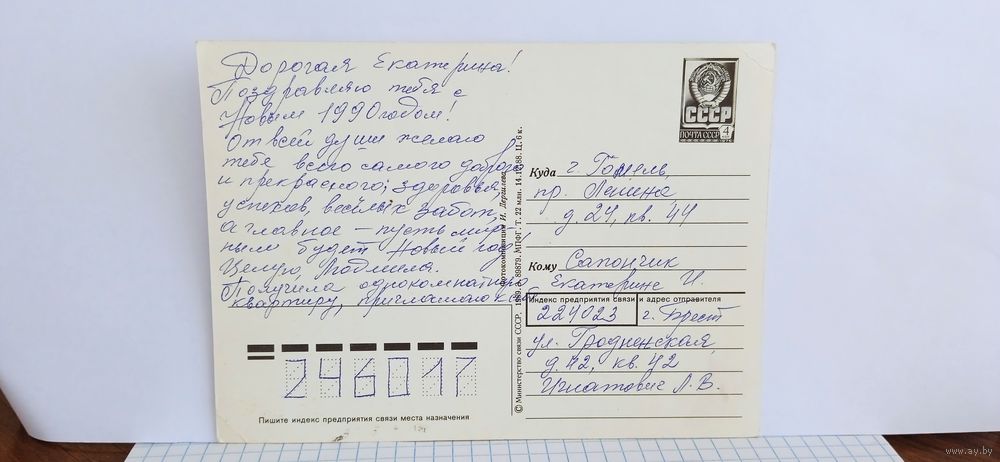 Дорогая Екатерина!
Поздравляю тебя с
Новым 1990 годом!
От всей души желаю
тебе всего самого доброго
и прекрасного; здоровья,
успехов, весёлых забот,
а главное – пусть мир-
ным будет Новый год.
Целую, Людмила.
Получила однокомнатную
квартиру, приглашаю к себе
СССР
ПОЧТА СССР 4
Куда г. Гомель,
пр. Ленина
д. 24, кв. 44
Кому Сапончик
Екатерине И.
Индекс предприятия связи и адрес отправителя
224023 г. Брест
ул. Гродненская
д. 42, кв. 42
Игнатович Л. В.
246017
Пишите индекс предприятия связи места назначения
© Министерство связи СССР. И. Дергилева МПФГ. Т. 22 млн. Ц. 6 к.
www.ay.by